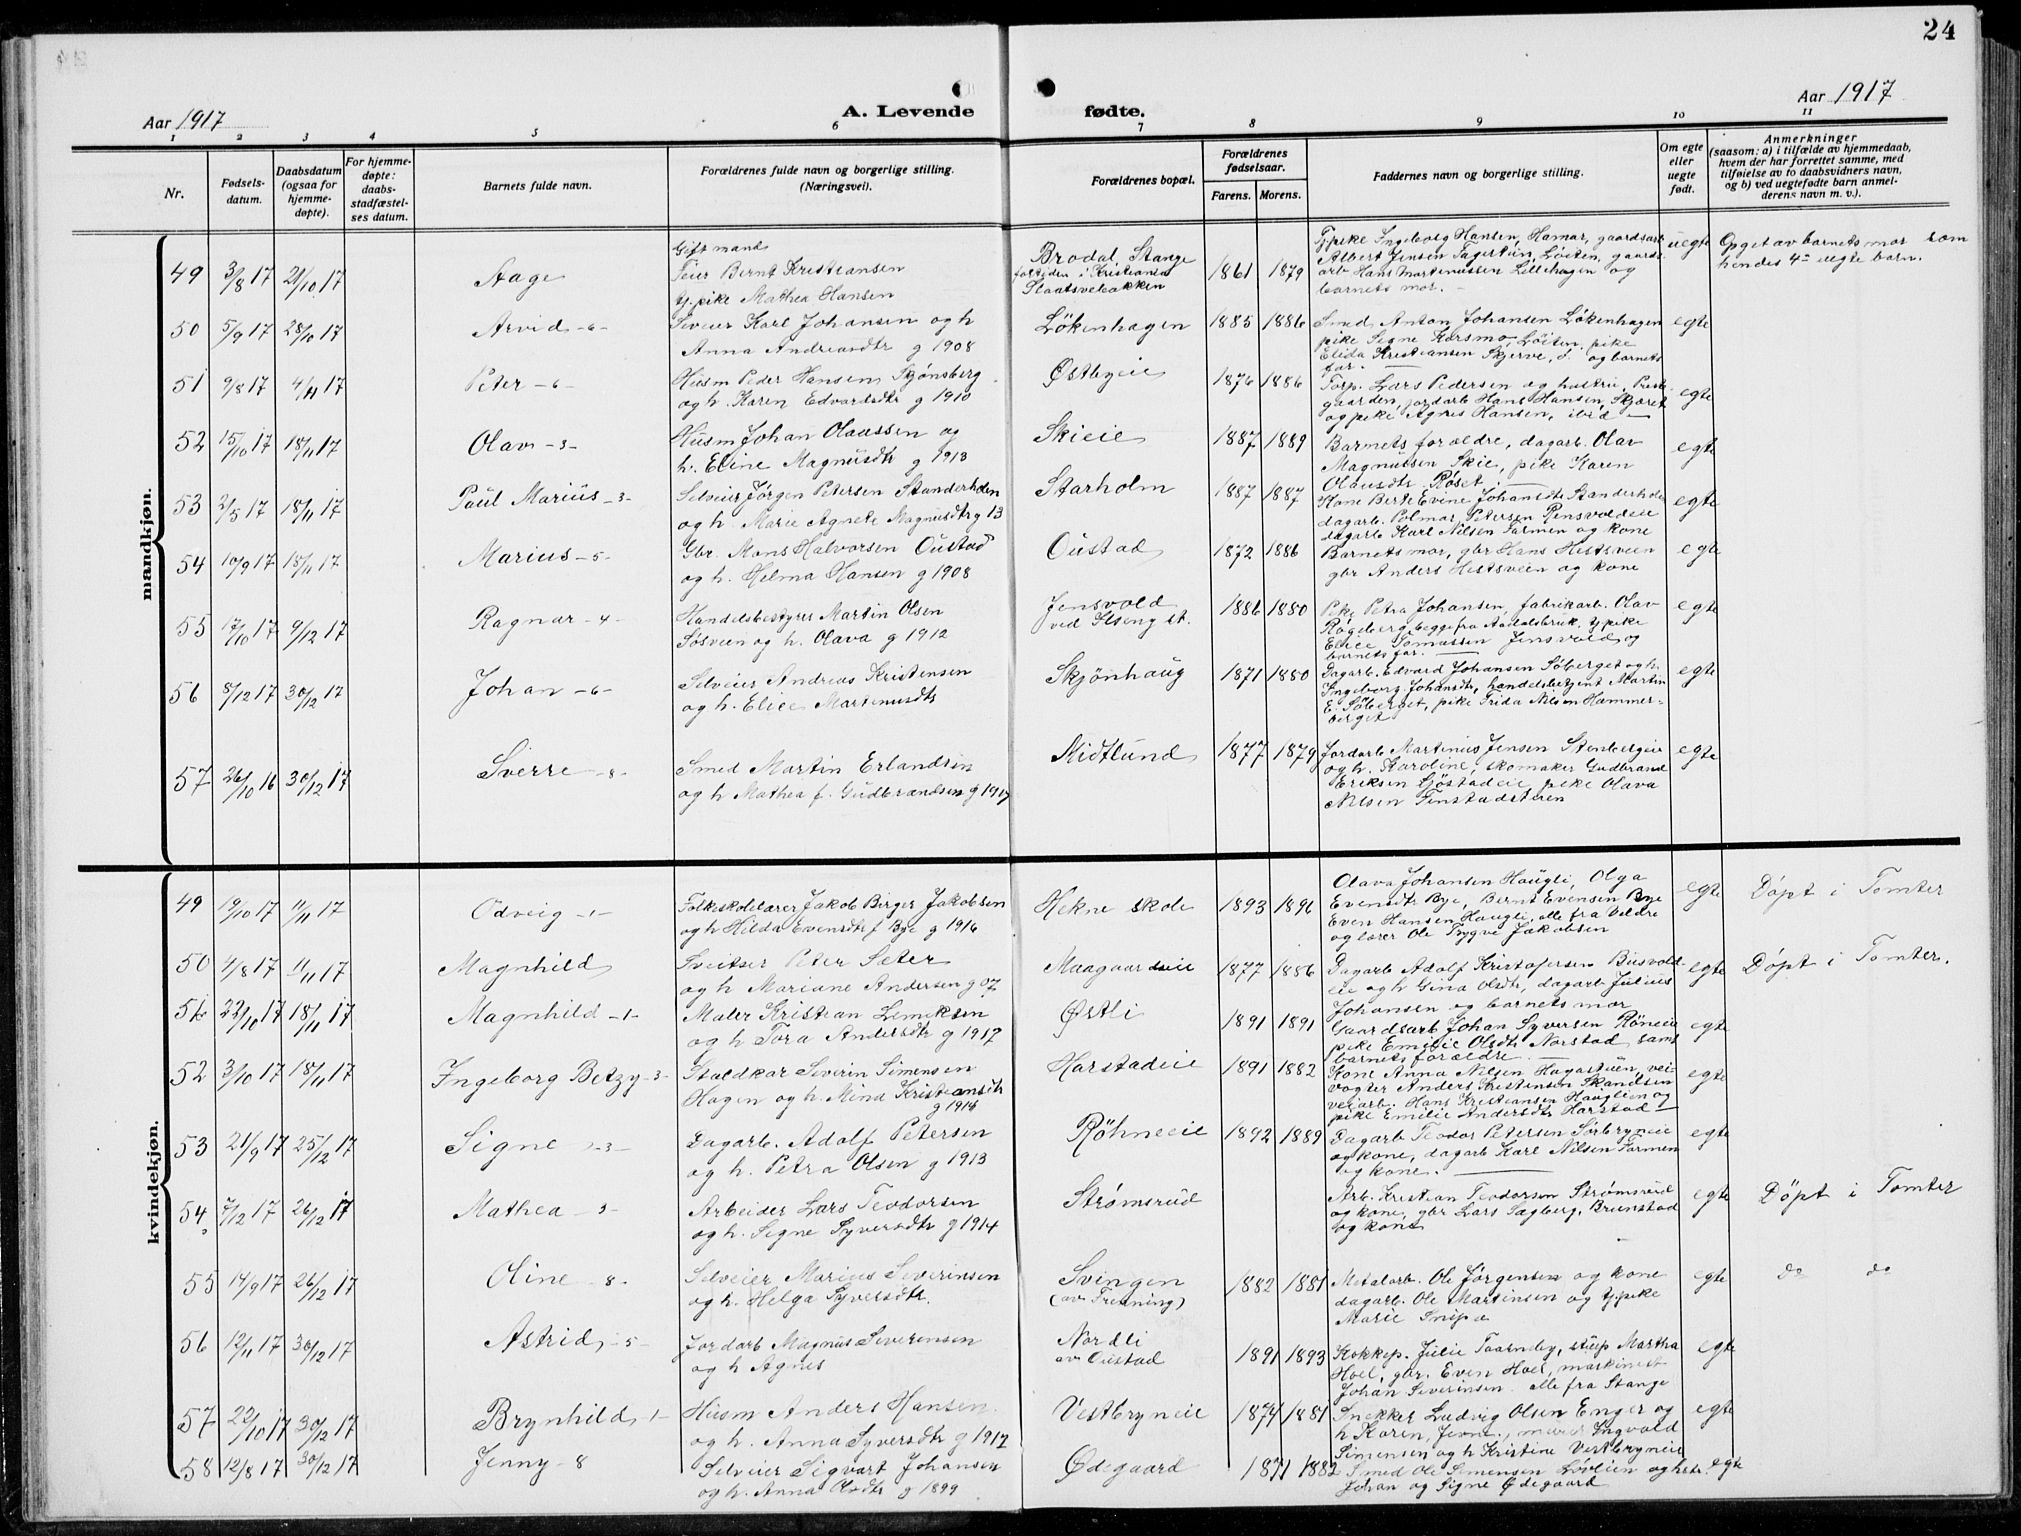 24
Aar 1917
A. Levende fødte.
Aar 1917
1 2 3 4 5 6 7 8 9 10 11
Nr.
Fødsels-
datum.
Daabsdatum
(ogsaa for
hjemme-
døpte).
For hjemme-
døpte:
daabs-
stadfæstel-
ses datum.
Barnets fulde navn.
Forældrenes fulde navn og borgerlige stilling.
(Næringsvei).
Forældrenes bopæl.
Forældrenes
fødselsaar.
Farens. Morens.
Faddernes navn og borgerlige stilling.
Om egte
eller
uegte
født.
Anmerkninger
(saasom: a) i tilfælde av hjemmedaab,
hvem der har forrettet samme, med
tilføielse av to daabsvidners navn,
og b) ved uegtefødte barn anmel-
derens navn m. v.).
mandkjøn.
Gift mand
49 3/8 17 21/10 17 Aage
Feier Bernt Kristiansen
tj.pike Mathea Hansen
Brodal, Stange
fortiden i Kristiania
Slaatsvebakken
1861 1879
Tj.pike Ingeborg Hansen, Hamar, gaardsarb
Albert Jensen Fagertun, Løiten, gaards
arb Hans Martinussen Lillehagen og
barnets mor.
uegte
Opget av barnets mor som
hendes 4de uegte barn.
50 5/9 17 28/10 17 Arvid -6-
Seveier Karl Johansen og h
Anna Andreasdtr g 1908
Løkenhagen 1885 1886
Smed Anton Johansen Løkenhagen
pike Signe Korsmo, Løiten, pike
Elida Kristiansen Skjerve, og barnets
far.
egte
51 9/8 17 4/11 17 Peter -6-
Husm Peder Hansen Tjønsberg
og h. Karen Edvardsdtr g 1910
Østbyeie 1876 1886
Torp. Lars Pedersen og hustru, Prest
gaarden, jordarb Hans Hansen, Skjæret
og pike Agnes Hansen, ibid
egte
52 15/10 17 18/11 17 Olav -3-
Husm Johan Olaussen og
h. Eline Magnusdtr g 1913
Skieie 1887 1889
Barnets forældre, dagarb. Olav
Magnussen Skie, pike Karen
Olausdtr Røset
egte
53 2/5 17 18/11 17 Paul Marius -3-
Selveier Jørgen Petersen Standerholen
og h. Marie Agnete Magnusdtr g 13
Starholm 1887 1887
Kone Berte Evine Johansdtr Standerhole
dagarb. Polmar Petersen Rensvoldeie
dagarb Karl Nilsen Farmen og kone
egte
54 10/9 17 18/11 17 Marius -5-
Gbr. Mons Halvorsen Oustad
og h. Helma Hansen g 1908
Oustad 1872 1886
Barnets mor, gbr Hans Hestsveen
gbr Anders Hestsveen og kone
egte
55 17/10 17 9/12 17 Ragnar -4-
Handelsbestyrer Martin Olsen
Søsveen og h. Olava g 1912
Jensvold
ved Ilseng st.
1886 1880
Pike Petra Johansen, fabrikarb. Olav
Røgeberg, begge fra Aadalsbruk, tj pike
Elise Tomassen Jensvold og
barnets far.
egte
56 8/12 17 30/12 17 Johan -6-
Selveier Andreas Kristensen
og h. Elice Martinusdtr
Skjønhaug 1871 1880
Dagarb. Edvard Johansen Søberget og h.
Ingeborg Johansdtr, handelsbetjent Martin
E. Søberget, pike Frida Nilsen Hammer-
berget
egte
57 26/10 16 30/12 17 Sverre -8-
Smed Martin Erlandsen
og h Mathea f. Gudbrandsen g 1917
Midtlund 1877 1879
Jordarb Martinus Jensen Stenbergeie
og h. Karoline, skomaker Gudbrand
Eriksen Gjøstadeie, pike Olava
Nilsen Finstadsteren
egte
kvindekjøn.
49 19/10 17 11/11 17 Odveig -1-
Folkeskolelærer Jakob Birger Jakobsen
og h Hilda Evensdtr f Bye g 1916
Hekne skole 1893 1896
Olava Johansen Haugli, Olga
Evensdtr Bye, Bernt Evensen Bye
Even Hansen Haugli, alle fra Veldre
og lærer Ole Trygve Jakobsen
egte
Døpt i Tomter
50 4/8 17 11/11 17 Magnhild
Sveitser Peter Sæter
og h Mariane Andersen g 07
Maagaardseie 1877 1886
Dagarb Adolf Kristofersen Busvold-
eie og h Gina Olsdtr, dagarb Julius
Johansen og barnets mor
egte
Døpt i Tomter.
51 22/10 17 18/11 17 Magnhild -1-
Maler Kristian Lemiksen
og h Tora Andersdtr g 1917
Østli 1891 1891
Gaardsarb Johan Syversen Røneie
pike Emilie Olsdtr Norstad samt
barnets forældre
egte
52 3/10 17 18/11 17 Ingeborg Betzy -3-
Staldkar Severin Simensen
Hagen og h. Mina Kristiansdtr
g 1914
Harstadeie 1891 1882
Kone Anna Nilsen Hagastuen, vei
vogter Anders Kristensen Skandsen
veiarb. Hans Kristiansen Hauglien og
pike Emilie Andersdtr Harstad
egte
53 21/9 17 25/12 17 Signe -3-
Dagarb. Adolf Petersen
og h. Petra Olsen g 1913
Røhneeie 1892 1889
Dagarb Teodor Petersen Sørbryneie
og kone, dagarb Karl Nilsen Farmen
og kone.
egte
54 7/12 17 26/12 17 Mathea -3-
Arbeider Lars Teodorsen
og h. Signe Syversdtr g 1914
Strømsrud
Arb. Kristian Teodorsen Strømsrud
og kone, gbr Lars Fagberg, Brunstad
og kone
egte
Døpt i Tomter
55 14/9 17 26/12 17 Oline -8-
Selveier Marius Severinsen
og h. Helga Syversdtr.
Svingen
(av Frenning)
1882 1881
Metalarb. Ole Jørgensen og kone
dagarb. Ole Martinsen og tj.pike
Marie Snipa
egte
do do
56 12/11 17 30/12 17 Astrid -5-
Jordarb Magnus Severinsen
og h Agnes
Nordli
av Oustad
1891 1893
Kokkep. Julie Taarneby, stuep Martha
Hoel, gbr. Even Hoel, maskinist
Johan Severinsen alle fra Stange
egte
57 22/10 17 30/12 17 Brynhild -1-
Husm Anders Hansen
og h. Anna Syversdtr g 1917
Vestbryneie 1874 1881
Snekker Ludvig Olsen Enger og
h Karen, Jevne, murer Ingvald
Simensen og h Kristine Vestbryneie
egte
58 12/8 17 30/12 17 Jenny -8
Selveier Sigvart Johansen
og h. Anna Olsdtr g 1899
Ødegaard 1871 1882
Smed Ole Simensen Løvlien og hstr.
Johan og Signe Ødegaard
egte